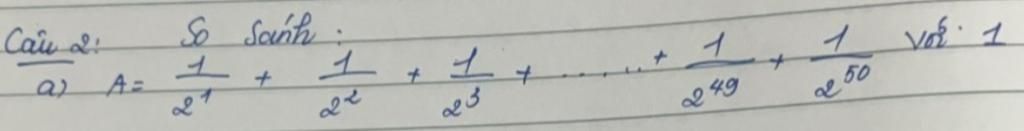 Câu 2: So sánh:
a) A = 1/2^1 + 1/2^2 + 1/2^3 + ...... + 1/2^49 + 1/2^50 với 1